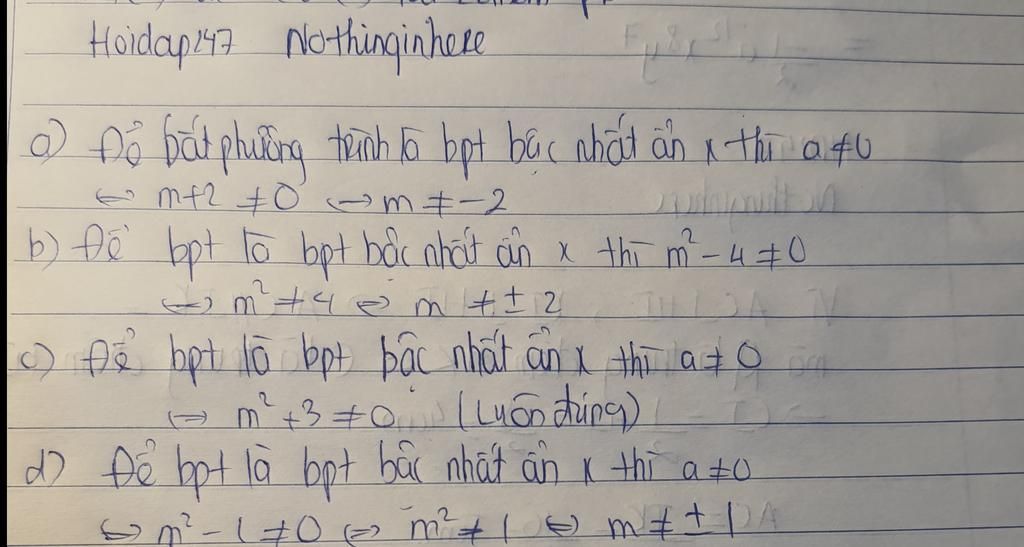 Hoidap247 Nothinginhere
a) Để bất phương trình là bpt bậc nhất ẩn x thì a ≠ 0
⇔ m+2 ≠ 0 ⇔ m ≠ -2
b) Để bpt là bpt bậc nhất ẩn x thì m² - 4 ≠ 0
⇔ m² ≠ 4 ⇔ m ≠ ± 2
c) Để bpt là bpt bậc nhất ẩn x thì a ≠ 0
⇔ m² + 3 ≠ 0 (Luôn đúng)
d) Để bpt là bpt bậc nhất ẩn x thì a ≠ 0
⇔ m² - 1 ≠ 0 ⇔ m² ≠ 1 ⇔ m ≠ ± 1